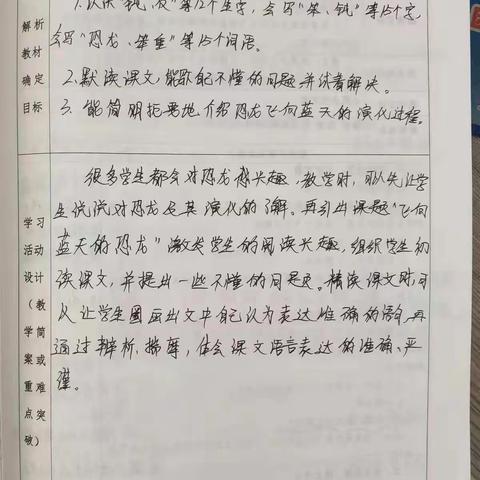 解析
教材
确定
目标
1.认识"钝、
等12个生字,会写"笨、钝"等15个字,
会写"恐龙、笨重"等15个词语。
2.默读课文,能提出不懂的问题并试着解决。
3. 能简明扼要地介绍恐龙飞向蓝天的演化过程。
学习
活动
设计
(教
学简
案或
重难
点突
破)
很多学生都会对恐龙感兴趣,教学时,可以先让学
生说说对恐龙及其演化的了解。再引出课题"飞向
蓝天的恐龙"激发学生的阅读兴趣,组织学生初
读课文,并提出一些不懂的问题。精读课文时,可
以让学生圈画出文中自己认为表达准确的语句,再
通过辨析、揣摩,体会课文语言表达的准确、严
谨。